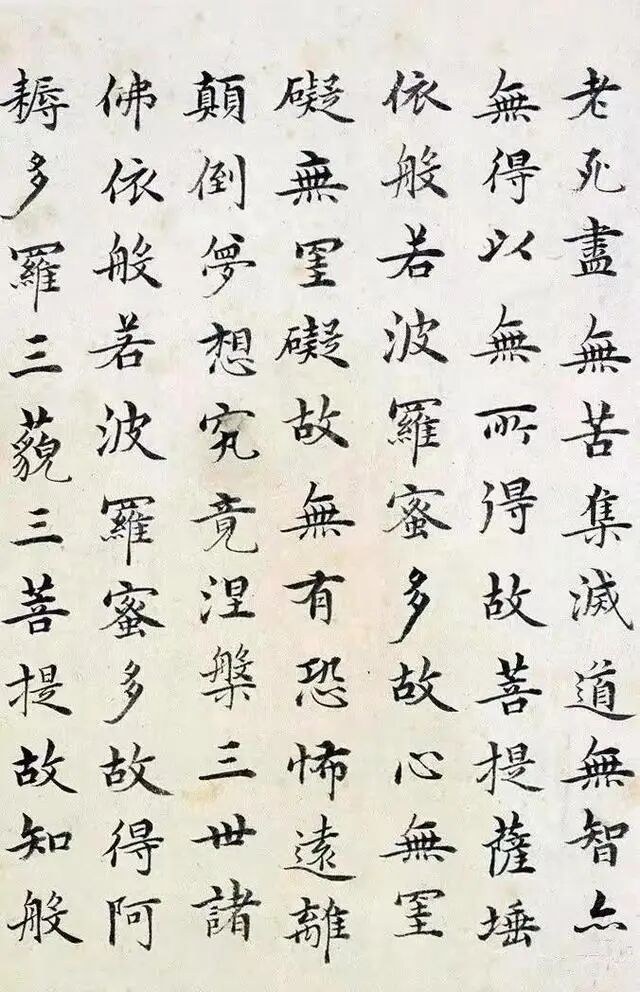 老死盡無苦集滅道無智亦
無得以無所得故菩提薩埵
依般若波羅蜜多故心無罣
礙無罣礙故無有恐怖遠離
顛倒夢想究竟涅槃三世諸
佛依般若波羅蜜多故得阿
耨多羅三藐三菩提故知般